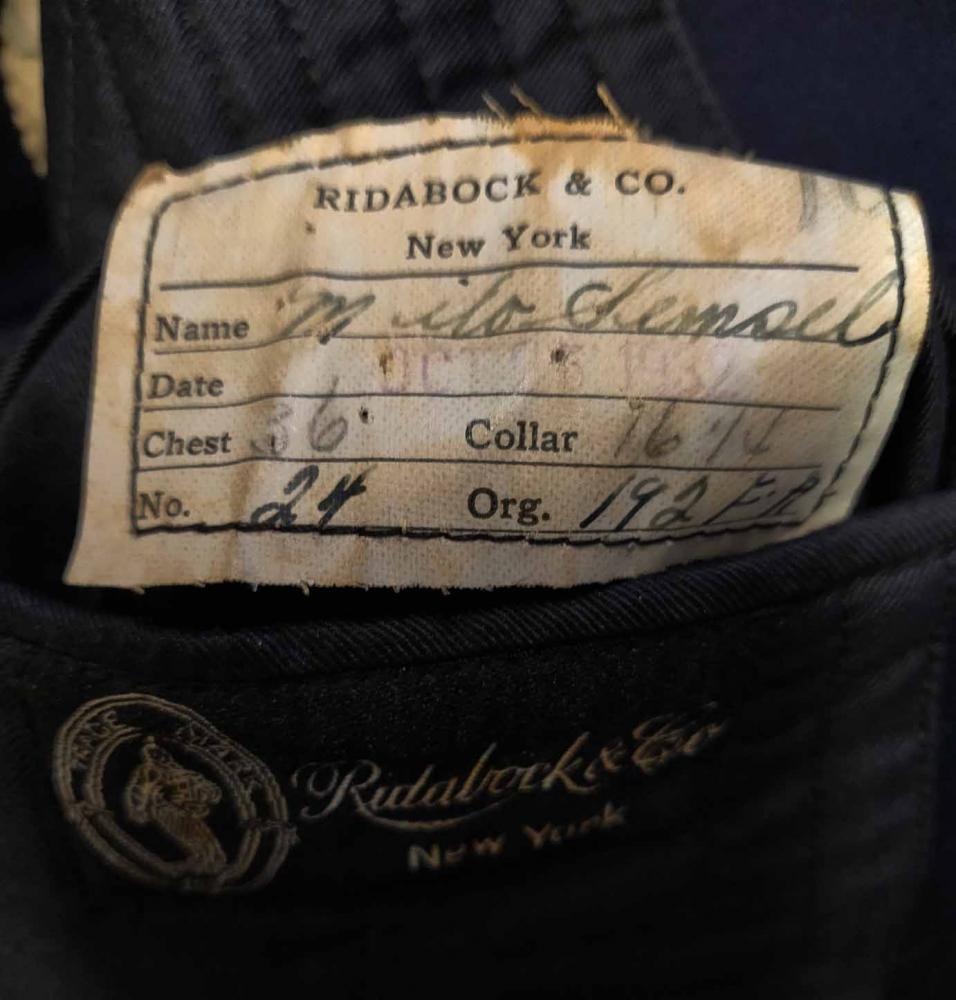 RIDABOCK & CO.
New York
Name Milo
Date OCT 1932
Chest 36 Collar 16
No. 24 Org. 192
TRADE MARK
Ridabock & Co
New York